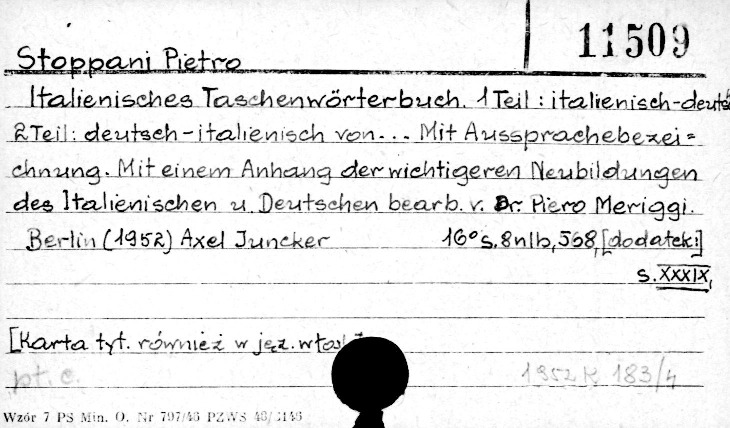 11509
Stoppani Pietro
Italienisches Taschenwörterbuch. 1 Teil : italienisch-deuts
2 Teil: deutsch-italienisch von... Mit Aussprachebezei=
chnung. Mit einem Anhang der wichtigeren Neubildungen
des Italienischen u. Deutschen bearb. v. Dr. Piero Meriggi.
Berlin (1952) Axel Juncker 16° s. 8nlb, 568, [dodatek:]
s. XXXIX,
[Karta tyt. również w jęz. włos
pt. c.
1952 K 183/4
Wzór 7 PS Min. O. Nr 797/46 PZWS 46/